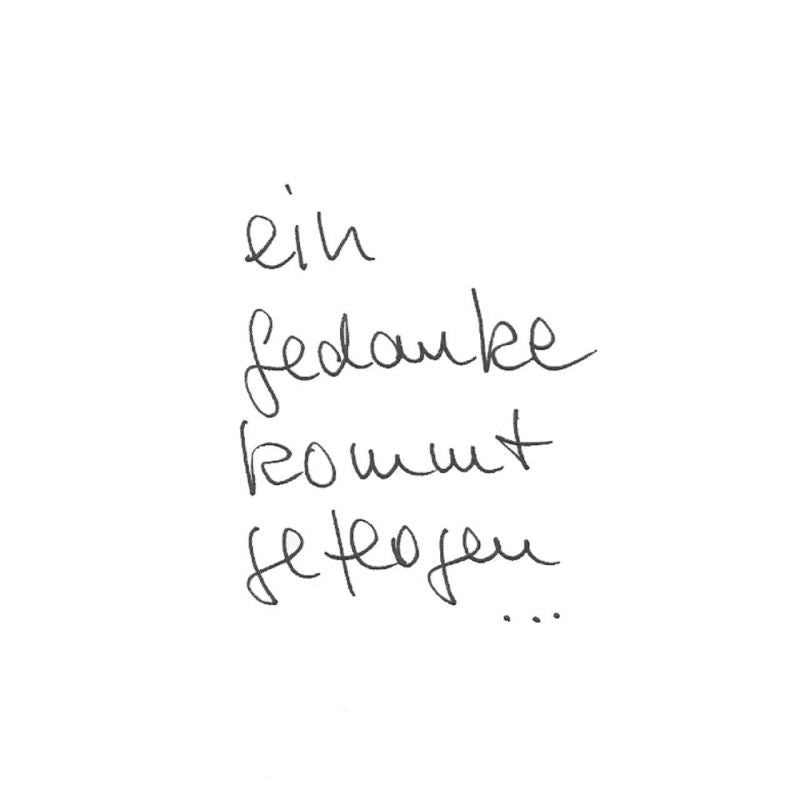 ein
gedanke
kommt
geflogen
...